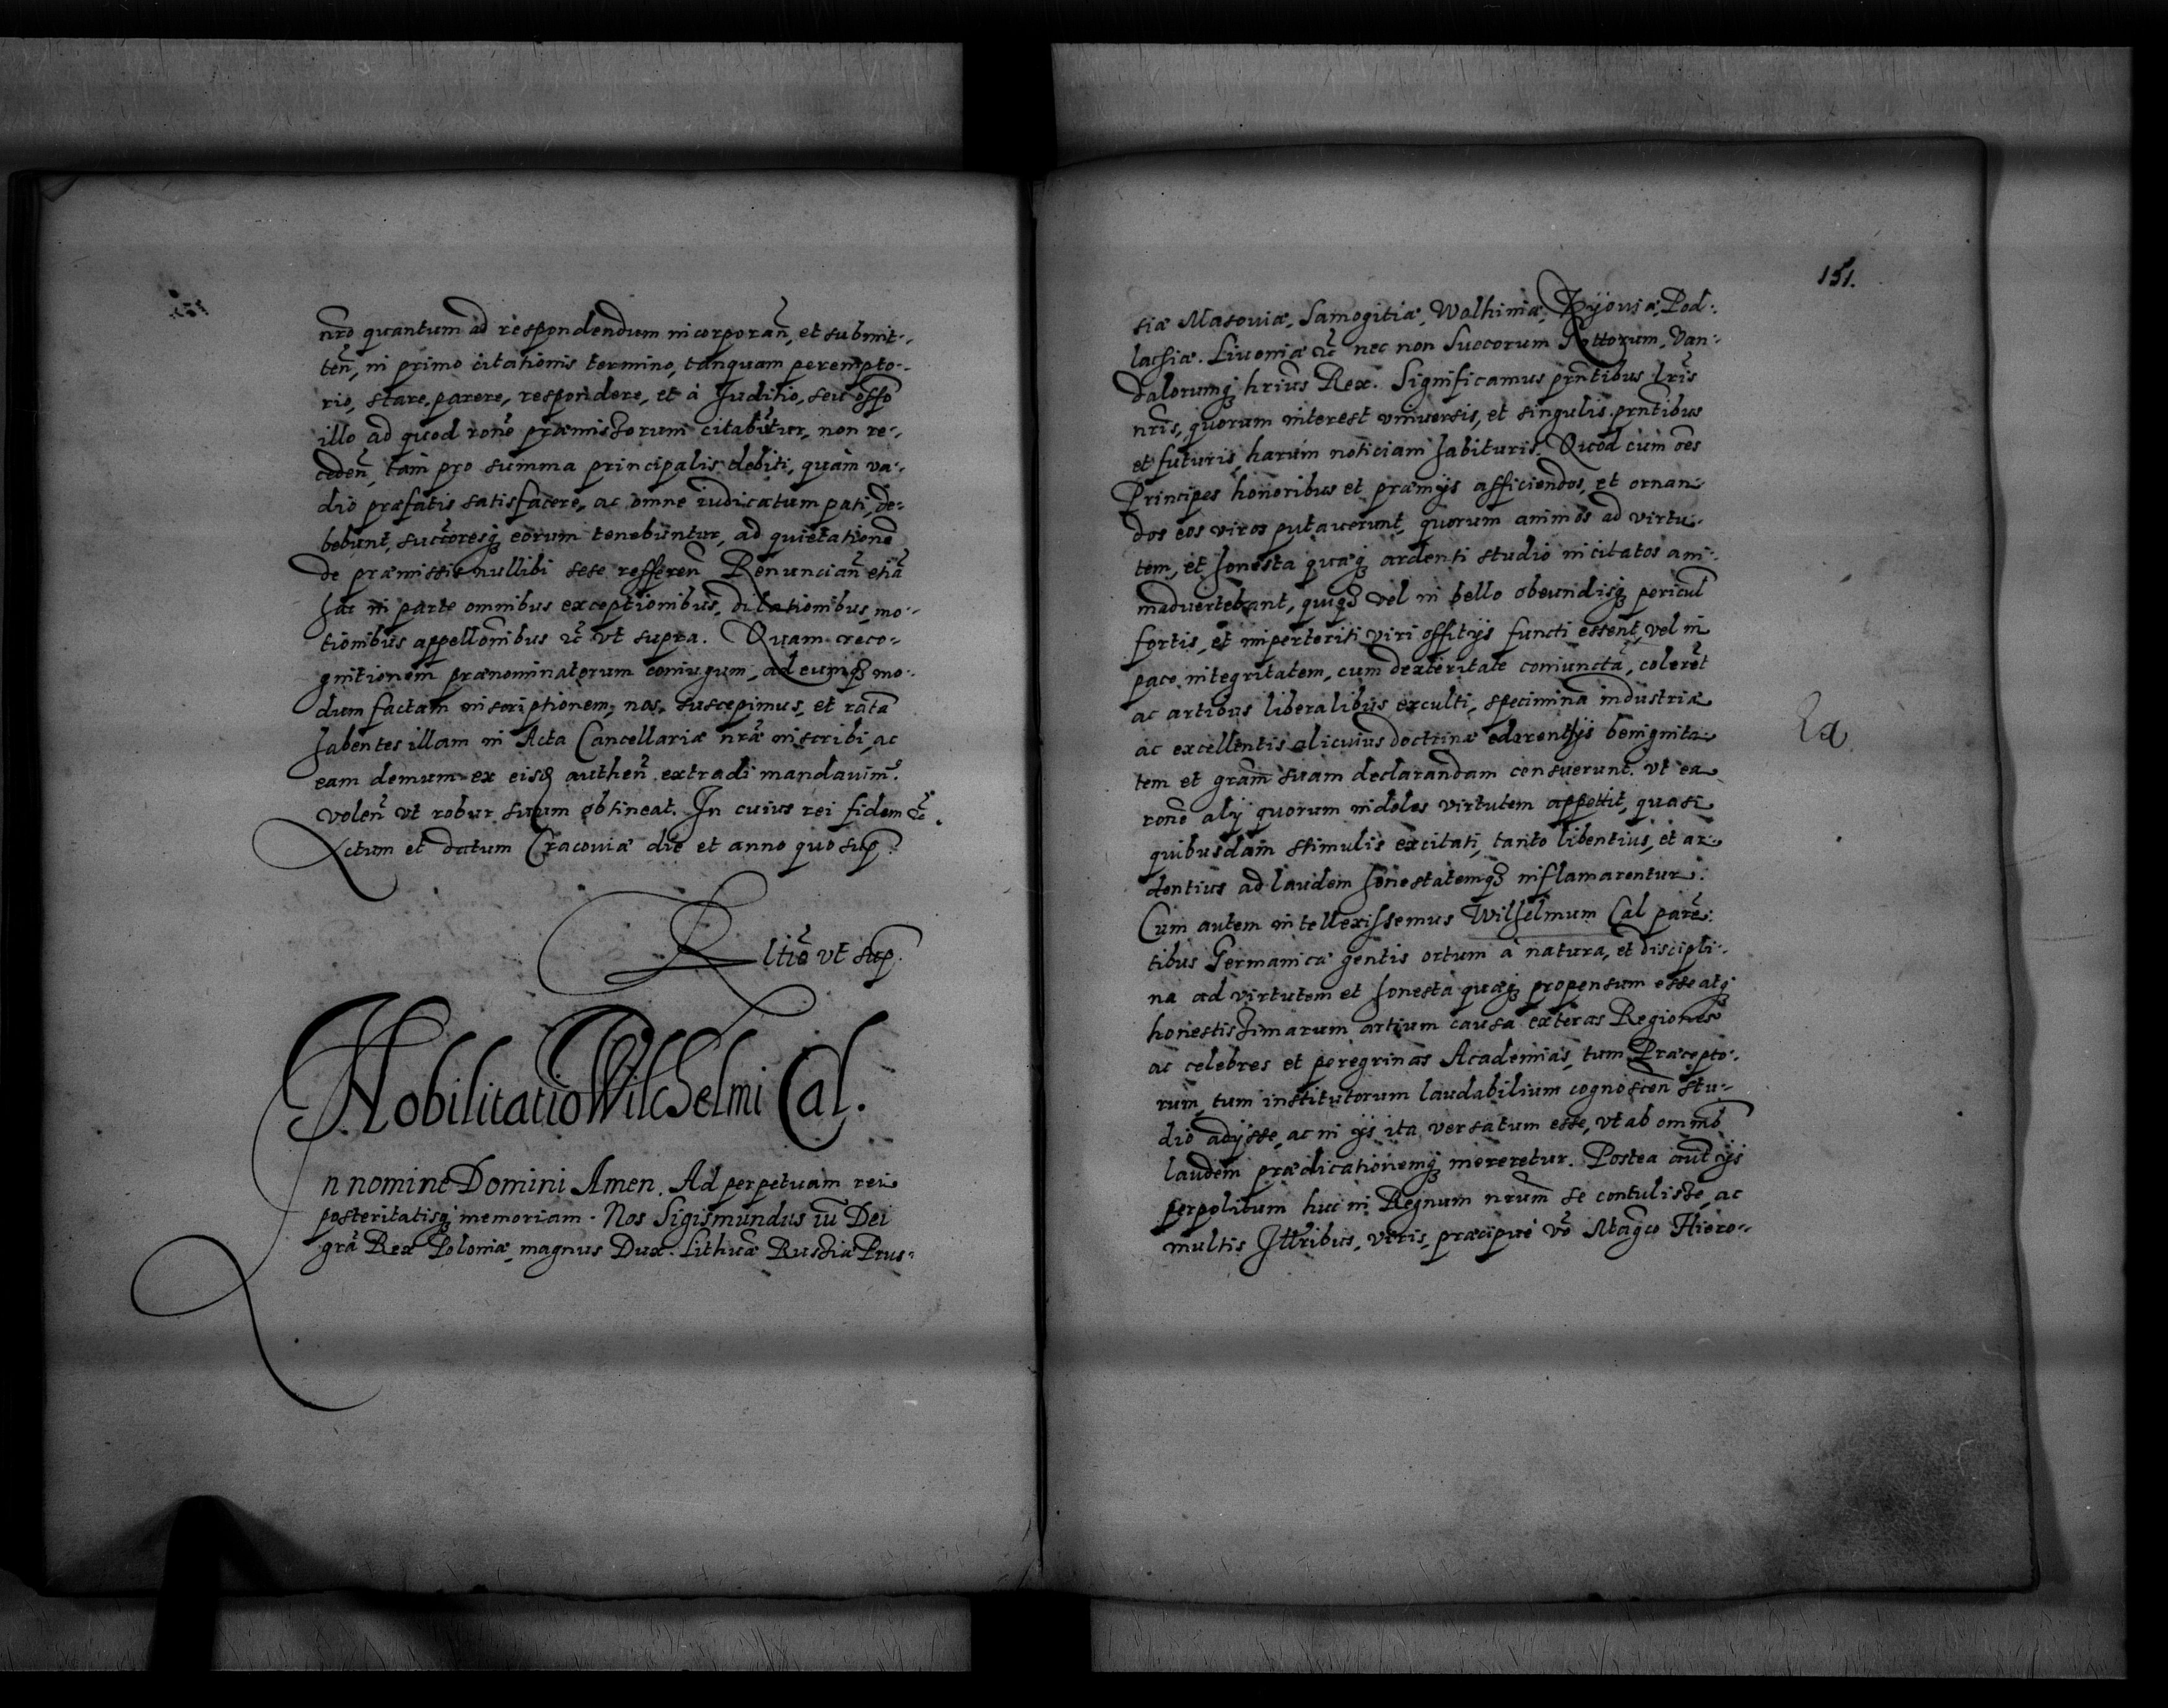 nro quantum ad respondendum incorporan, et submit-
ten, in primo citationis termino, tanquam perempto-
rio, stare, parere, respondere, et à Juditio, seu offo
illo ad quod rone præmissorum citabitur, non re-
ceden, tam pro summa principalis debiti, quam va-
dio præfatis satisfacere, ac omne iudicatum pati, de-
bebunt, succoresq eorum tenebuntur, ad quietatione
de præmissis nullibi sese refferen Renuncian etiã
hac in parte omnibus exceptionibus, dilationibus, mo-
tionibus appellonibus ec vt supra. Quam reco-
gnitionem prænominatorum coniugum, ad eumq mo-
dum factam inscriptionem, nos, suscepimus, et ratã
habentes illam in Acta Cancellariæ nræ inscribi, ac
eam demum ex eisd authen extradi mandauim.
volen vt robur suum obtineat. In cuius rei fidem ec.
Actum et datum Cracouiæ die et anno quo sup
Rltio vt sup.
Nobilitatio Wilchelmi Cal.
In nomine Domini Amen. Ad perpetuam rei
posteritatisq memoriam. Nos Sigismundus iii Dei
grã Rex Poloniæ, magnus Dux. Lithuæ Russiæ Prus-
151.
siæ Masouiæ, Samogitiæ, Wolhiniæ, Kyouiæ, Pod-
lachiæ. Liuoniæ ec nec non Suecorum Gottorum, Van-
dalorumq hrius Rex. Significamus prntibus lris
nris, quorum interest vniuersis, et singulis prntibus
et futuris, harum noticiam habituris. Quod cum oes
Principes honoribus et præmijs afficiendos, et ornan-
dos eos viros putauerunt, quorum animos ad virtu-
tem, et honesta quæq ardenti studio incitatos ani-
maduertebant, quiq vel in bello obeundisq pericul
fortis, et imperteriti viri offitijs functi essent, vel in
pace integritatem, cum dexteritate coniunctã, coleret
ac artibus liberalibus exculti, specimina industriæ
ac excellentis alicuius doctrinæ ederent ijs benignita-
tem et gram suam declarandam consuerunt. vt ea
rone alij quorum indoles virtutem appetit, quasi
quibusdam stimulis excitati, tanto libentius, et ar-
dentius ad laudem honestatemq inflamarentur.
Cum autem intellexissemus Wilhelmum Cal paren-
tibus Germanicæ gentis ortum à natura, et discipli-
na ad virtutem et honesta quæq propensum esse atq
honestissimarum artium causa exteras Regiones
ac celebres et peregrinas Academias, tum Præcepto-
rum, tum institutorum laudabilium cognoscen stu-
dio adijsse, ac in ijs ita versatum esse, vt ab omnib
laudem prædicationemq mereretur. Postea aut ijs
perpolitum huc in Regnum nrum se contulisse, ac
multis Jllribus, viris, præcipue vo Magco Hiero-